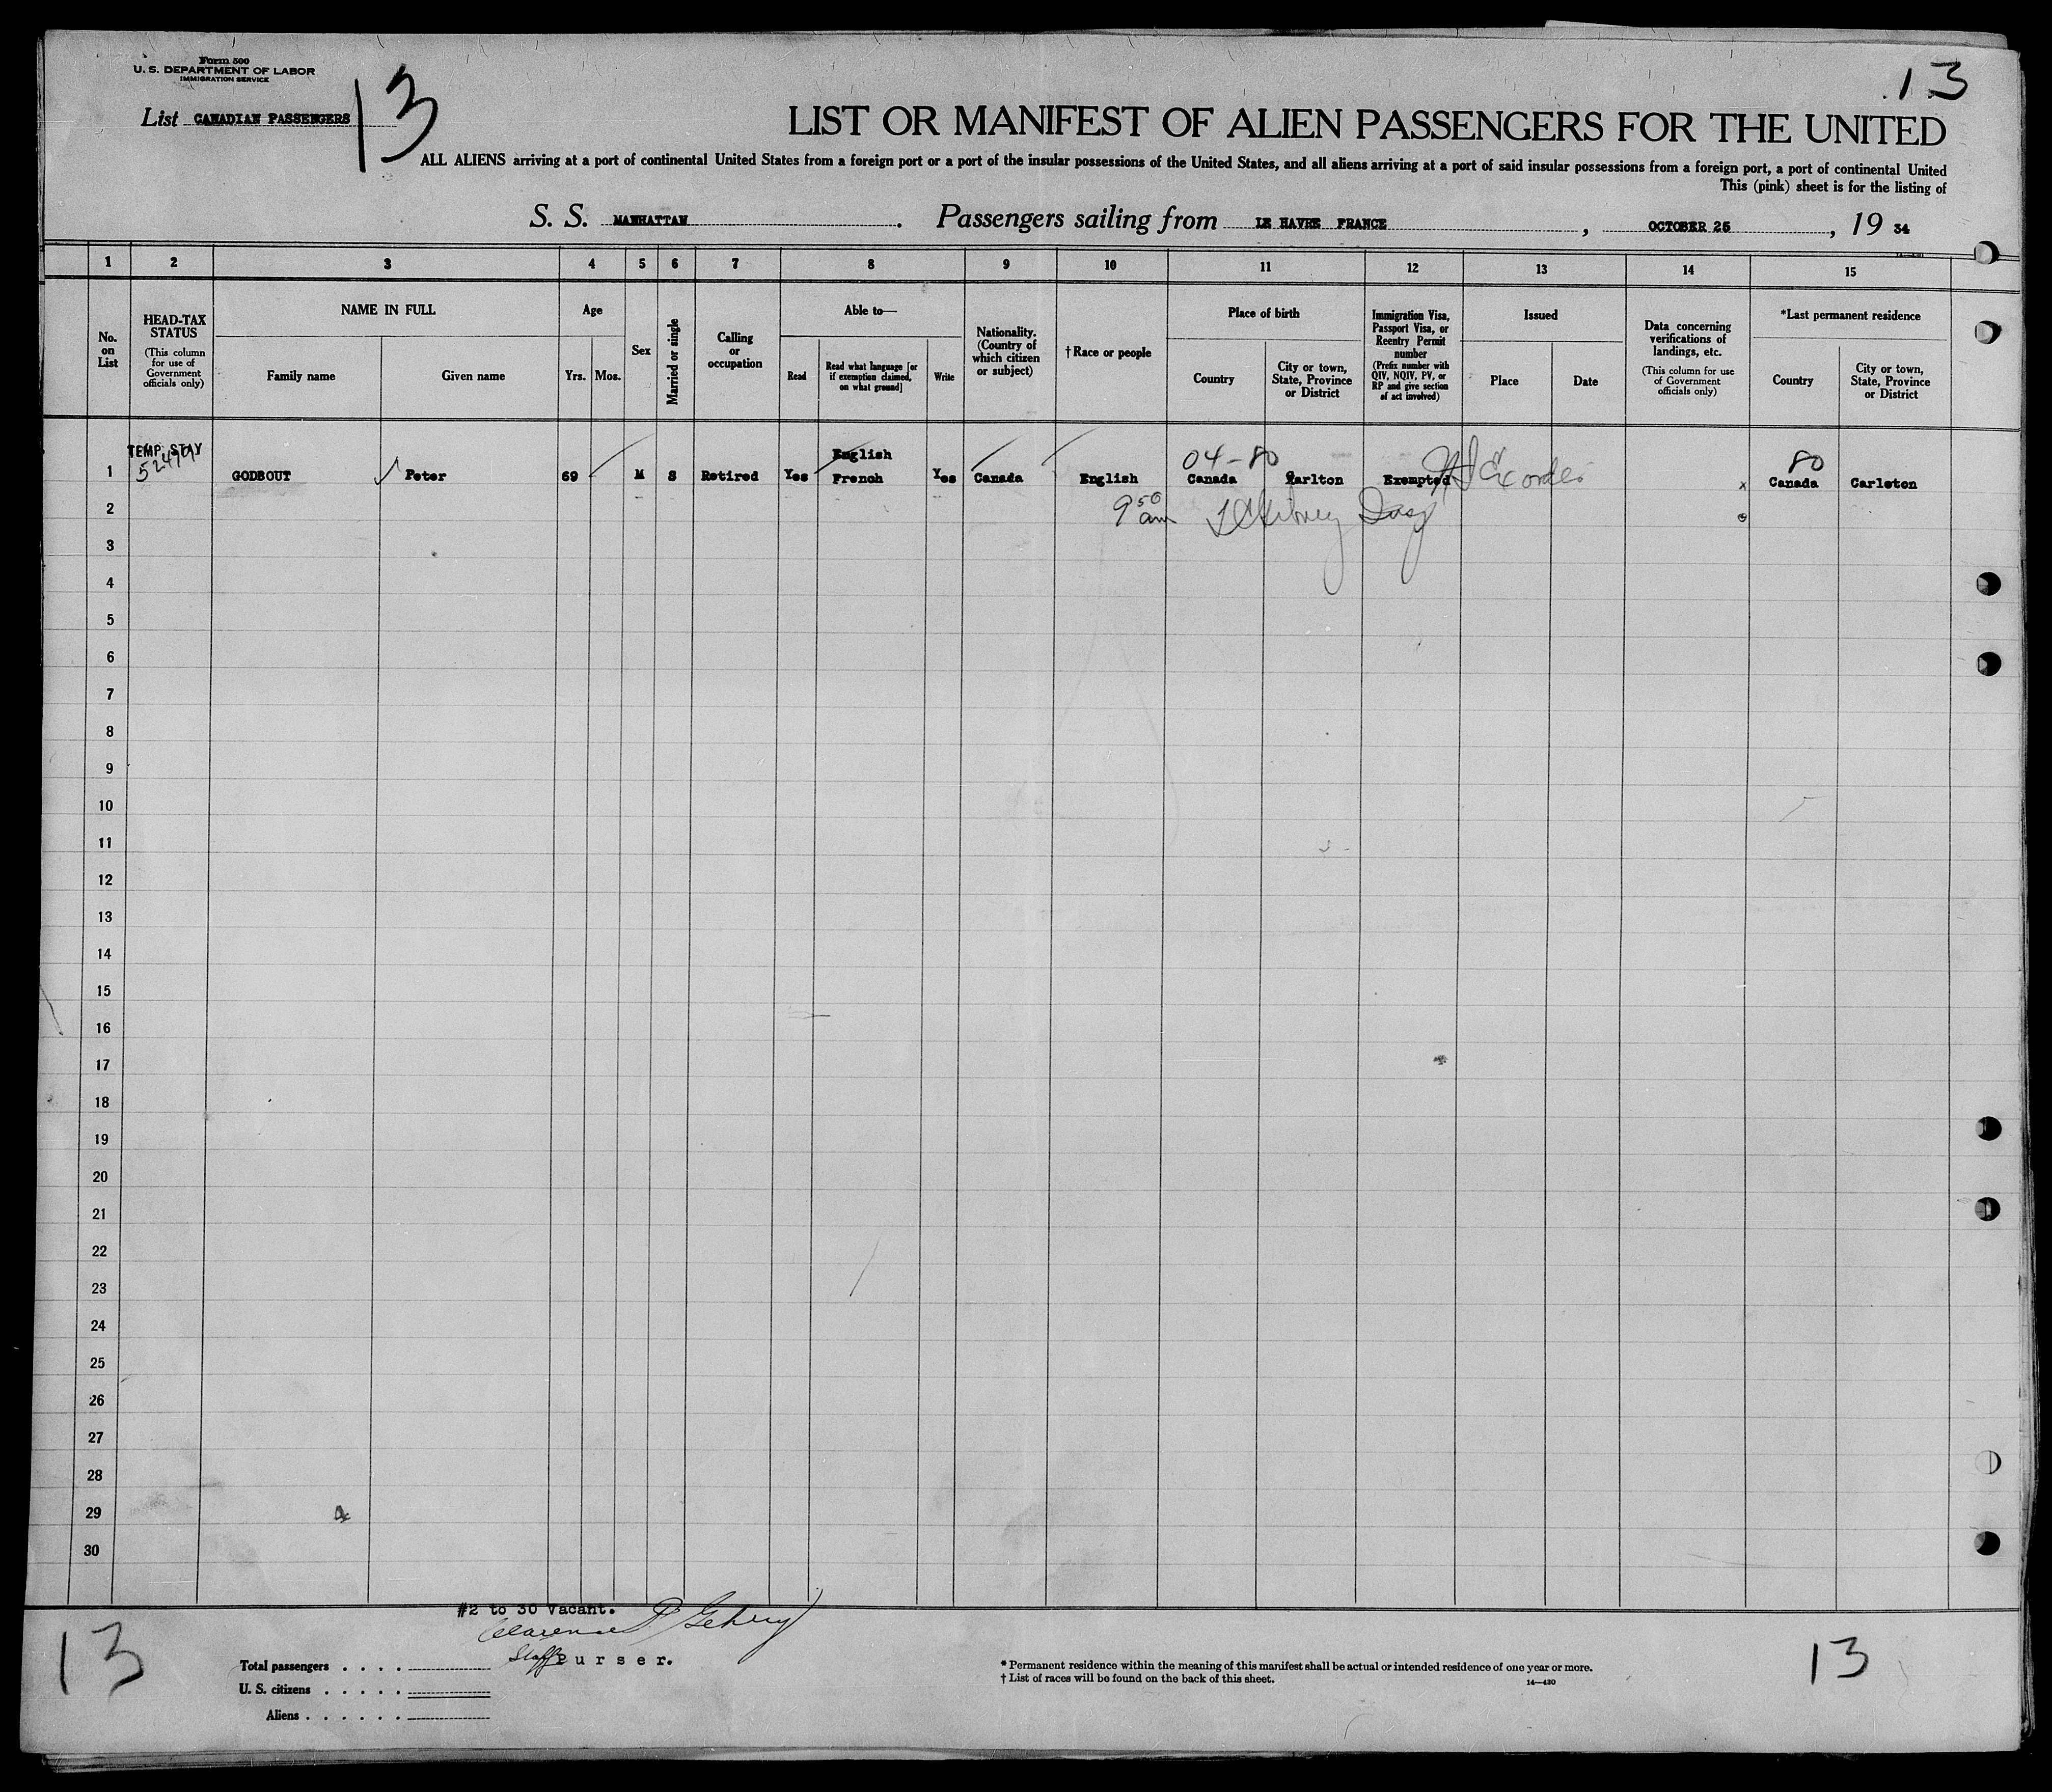 Form 500
U. S. DEPARTMENT OF LABOR
IMMIGRATION SERVICE
13
13
List CANADIAN PASSENGERS
LIST OR MANIFEST OF ALIEN PASSENGERS FOR THE UNITED
ALL ALIENS arriving at a port of continental United States from a foreign port or a port of the insular possessions of the United States, and all aliens arriving at a port of said insular possessions from a foreign port, a port of continental United
This (pink) sheet is for the listing of
S. S. MANHATTAN. Passengers sailing from LE HAVRE FRANCE, OCTOBER 25, 19 34
1 2 3 4 5 6 7 8 9 10 11 12 13 14 15
No. on List
HEAD-TAX STATUS
(This column for use of Government officials only)
NAME IN FULL
Family name
Given name
Age
Yrs. Mos.
Sex
Married or single
Calling or occupation
Able to—
Read
Read what language [or if exemption claimed, on what ground]
Write
Nationality. (Country of which citizen or subject)
†Race or people
Place of birth
Country
City or town, State, Province or District
Immigration Visa, Passport Visa, or Reentry Permit number
(Prefix number with QIV, NQIV, PV, or RP and give section of act involved)
Issued
Place
Date
Data concerning verifications of landings, etc.
(This column for use of Government officials only)
*Last permanent residence
Country
City or town, State, Province or District
TEMP. STAY
English
04-80
80
1 GODBOUT Peter 69 M S Retired Yes French Yes Canada English Canada Carlton Exempted x Canada Carleton
2 9 50 am
3
4
5
6
7
8
9
10
11
12
13
14
15
16
17
18
19
20
21
22
23
24
25
26
27
28
29
30
#2 to 30 Vacant.
Clarence
Staff Purser.
13
13
Total passengers . . . .
U. S. citizens . . . . .
Aliens . . . . . .
* Permanent residence within the meaning of this manifest shall be actual or intended residence of one year or more.
† List of races will be found on the back of this sheet.
14—430